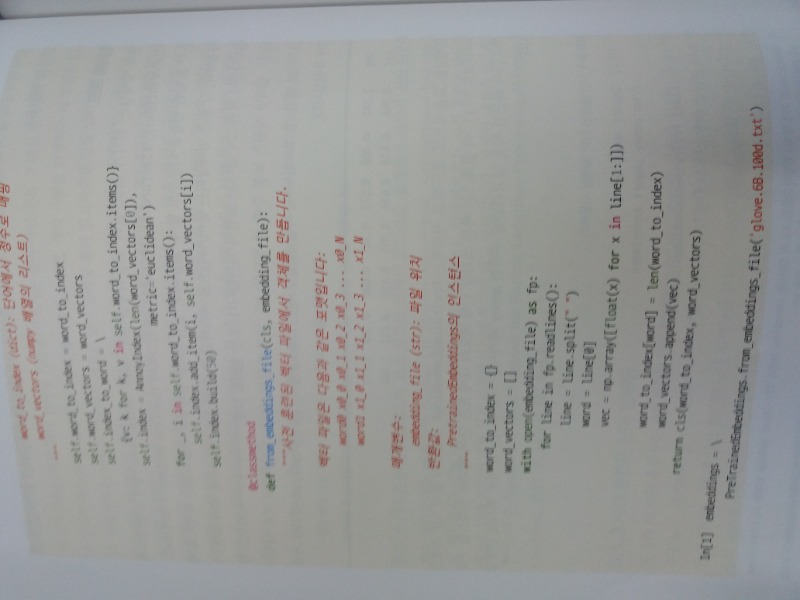 word_to_index (dict): 단어에서 정수로 매핑
word_vectors (numpy 배열의 리스트)
"""
self.word_to_index = word_to_index
self.word_vectors = word_vectors
self.index_to_word = \
{v: k for k, v in self.word_to_index.items()}
self.index = AnnoyIndex(len(word_vectors[0]),
metric='euclidean')
for _, i in self.word_to_index.items():
self.index.add_item(i, self.word_vectors[i])
self.index.build(50)
@classmethod
def from_embeddings_file(cls, embedding_file):
"""사전 훈련된 벡터 파일에서 객체를 만듭니다.
벡터 파일은 다음과 같은 포맷입니다:
word0 x0_0 x0_1 x0_2 x0_3 ... x0_N
word1 x1_0 x1_1 x1_2 x1_3 ... x1_N
매개변수:
embedding_file (str): 파일 위치
반환값:
PretrainedEmbeddings의 인스턴스
"""
word_to_index = {}
word_vectors = []
with open(embedding_file) as fp:
for line in fp.readlines():
line = line.split(" ")
word = line[0]
vec = np.array([float(x) for x in line[1:]])
word_to_index[word] = len(word_to_index)
word_vectors.append(vec)
return cls(word_to_index, word_vectors)
In[1] embeddings = \
PreTrainedEmbeddings.from_embeddings_file('glove.6B.100d.txt')